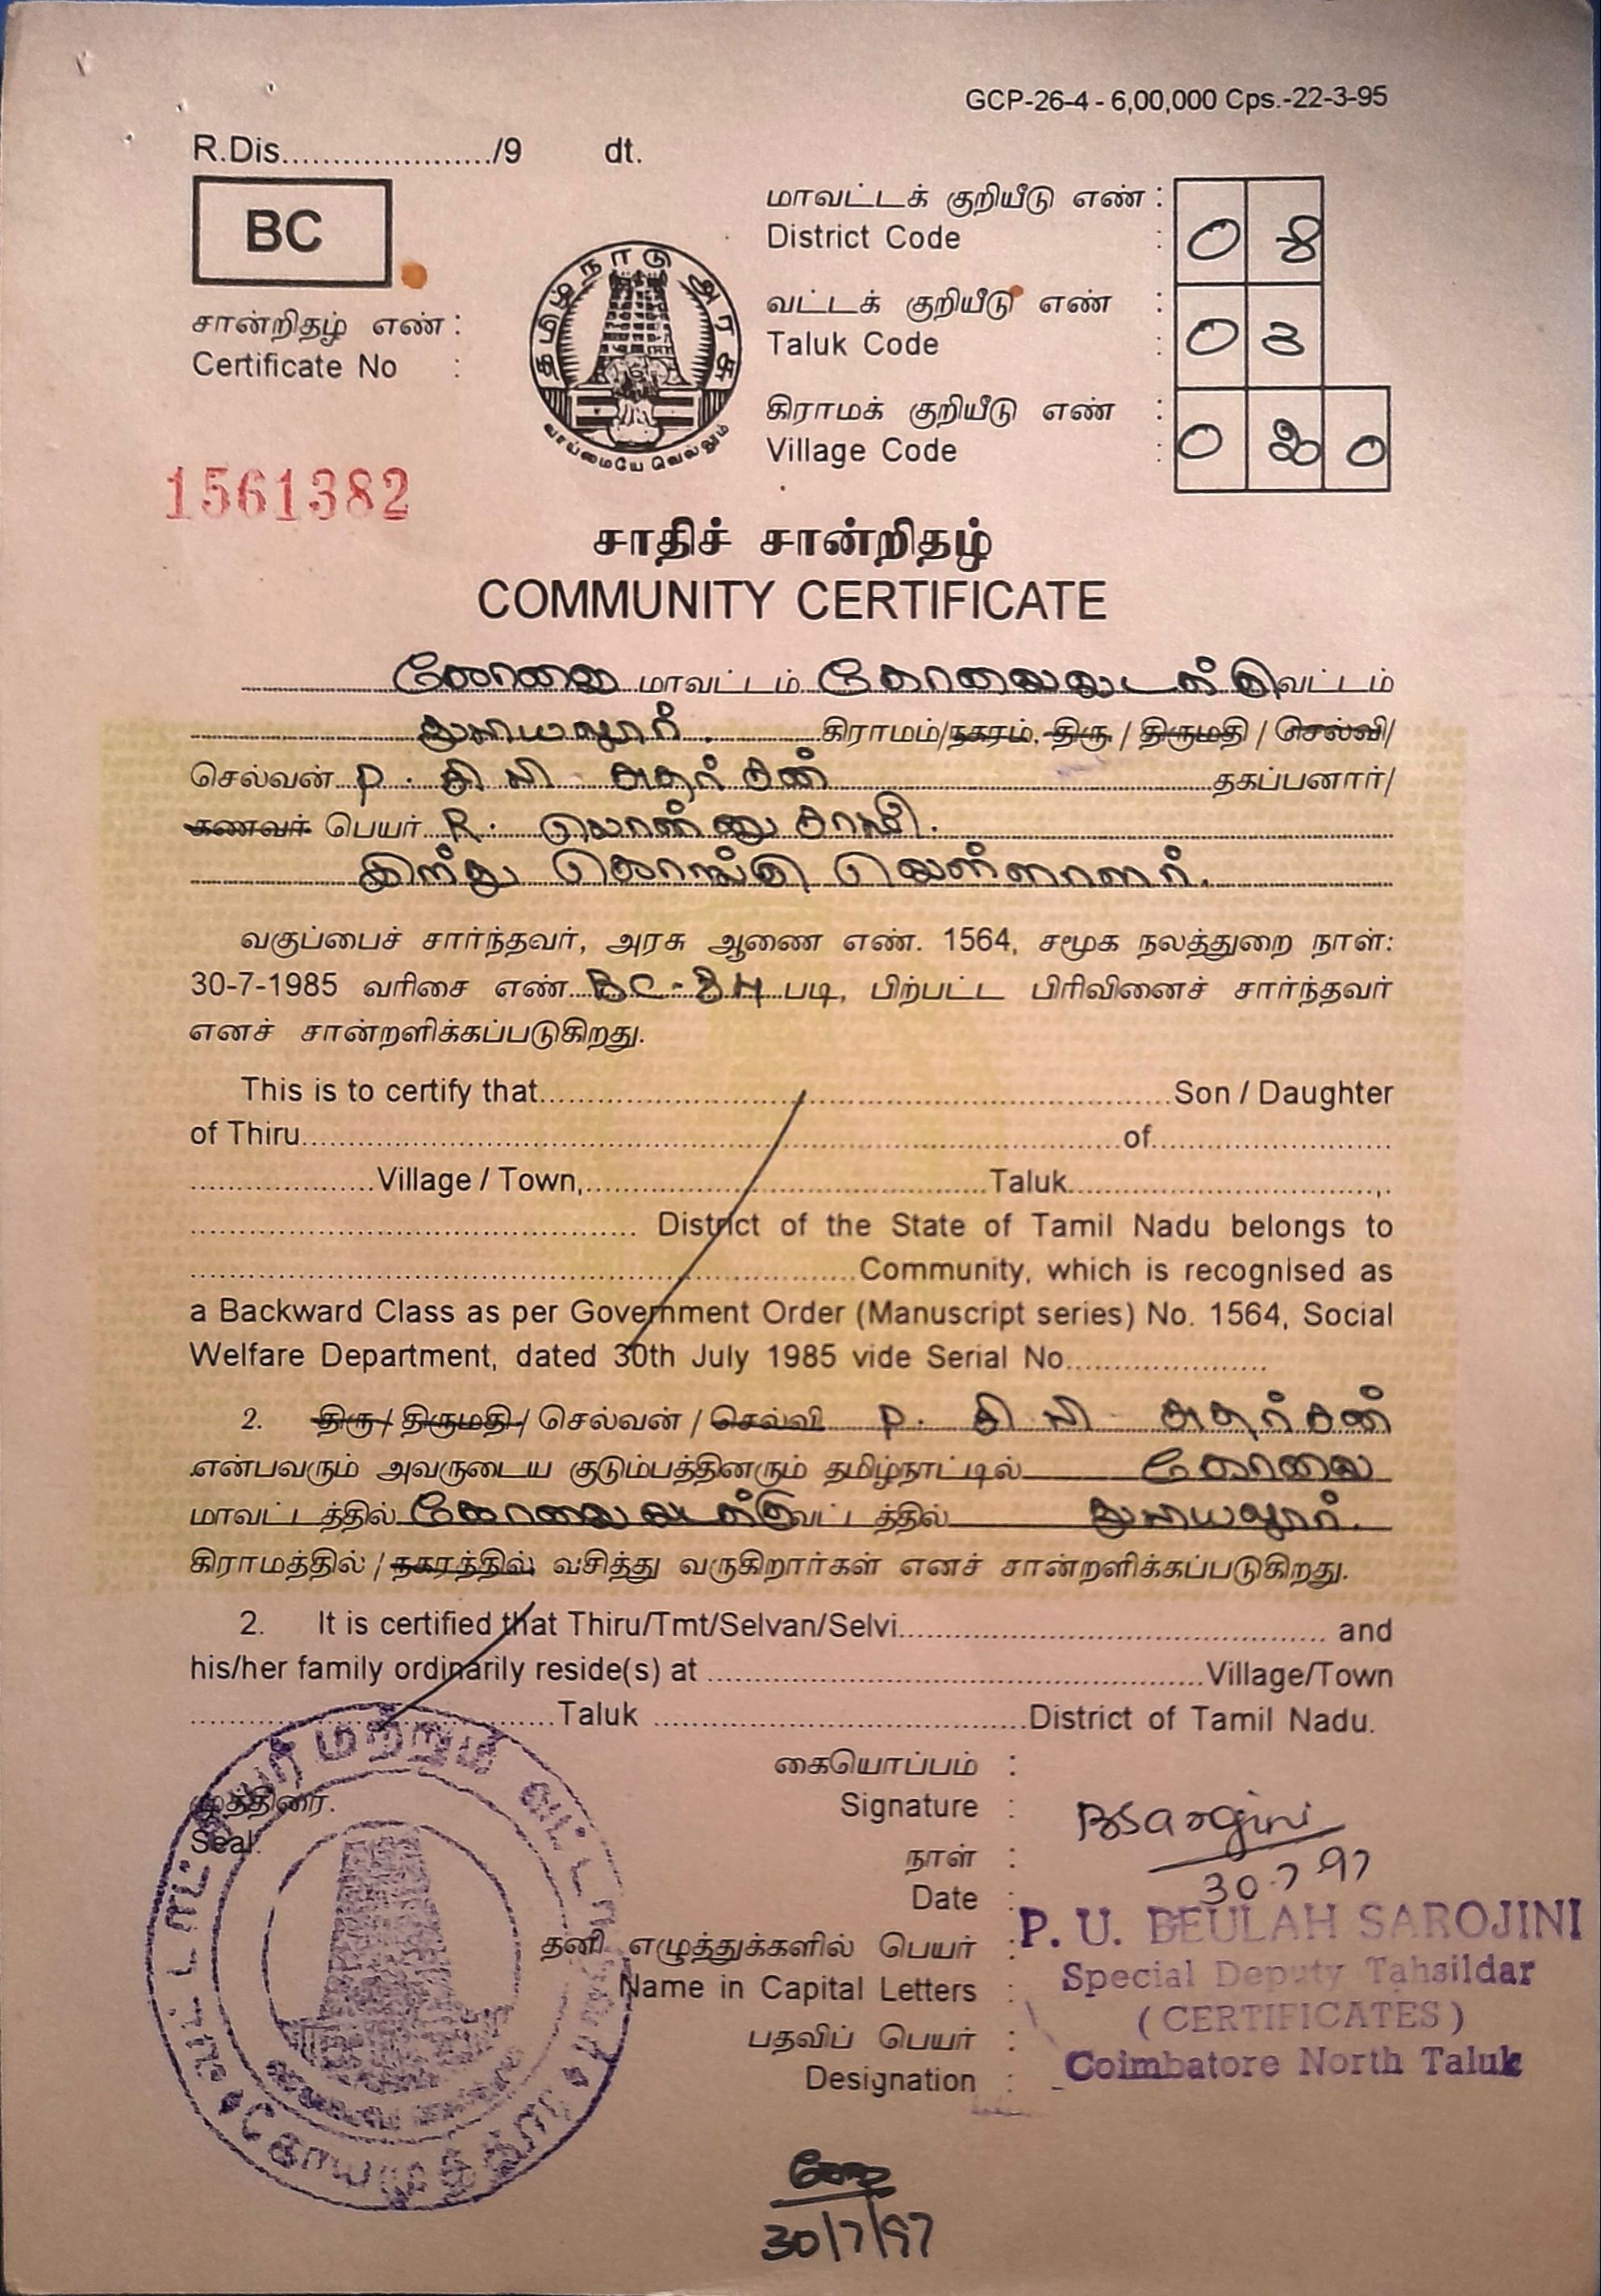 GCP-26-4 - 6,00,000 Cps.-22-3-95
R.Dis....................../9 dt.
BC
சான்றிதழ் எண் :
Certificate No :
1561382
தமிழ்நாடு அரசு
வாய்மையே வெல்லும்
மாவட்டக் குறியீடு எண் :
District Code : 0 8
வட்டக் குறியீடு எண் :
Taluk Code : 0 3
கிராமக் குறியீடு எண் :
Village Code : 0 0
சாதிச் சான்றிதழ்
COMMUNITY CERTIFICATE
கோவை மாவட்டம் கோவைவடக்கு வட்டம்
துடியலூர். கிராமம்/நகரம். திரு. / திருமதி / செல்வி/
செல்வன் P. சிவ சுதர்சன் தகப்பனார்/
கணவர் பெயர் R. பொன்னுசாமி.
இந்து கொங்கு வெள்ளாளர்.
வகுப்பைச் சார்ந்தவர், அரசு ஆணை எண். 1564, சமூக நலத்துறை நாள்:
30-7-1985 வரிசை எண் BC- படி, பிற்பட்ட பிரிவினைச் சார்ந்தவர்
எனச் சான்றளிக்கப்படுகிறது.
This is to certify that.................... Son / Daughter
of Thiru....................of....................
....................Village / Town,....................Taluk....................,.
.................... District of the State of Tamil Nadu belongs to
....................Community, which is recognised as
a Backward Class as per Government Order (Manuscript series) No. 1564, Social
Welfare Department, dated 30th July 1985 vide Serial No....................
2. திரு / திருமதி / செல்வன் / செல்வி P. சிவ சுதர்சன்
என்பவரும் அவருடைய குடும்பத்தினரும் தமிழ்நாட்டில் கோவை
மாவட்டத்தில் கோவை வடக்கு வட்டத்தில் துடியலூர்.
கிராமத்தில் / நகரத்தில் வசித்து வருகிறார்கள் எனச் சான்றளிக்கப்படுகிறது.
2. It is certified that Thiru/Tmt/Selvan/Selvi.................... and
his/her family ordinarily reside(s) at ....................Village/Town
....................Taluk ....................District of Tamil Nadu.
முத்திரை.
Seal.
கையொப்பம் :
Signature : BSarojini
நாள் :
Date : 30.7.97
தனி எழுத்துக்களில் பெயர் : P. U. BEULAH SAROJINI
Name in Capital Letters : Special Deputy Tahsildar
( CERTIFICATES )
பதவிப் பெயர் :
Designation : Coimbatore North Taluk
30/7/97